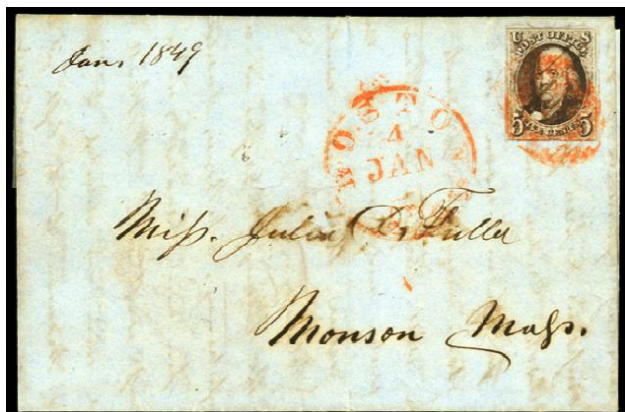 Jan, 1849
U S
POST OFFICE
5 5
BOSTON
4
JAN
Miss. Julia D. Fuller
Monson Mass.